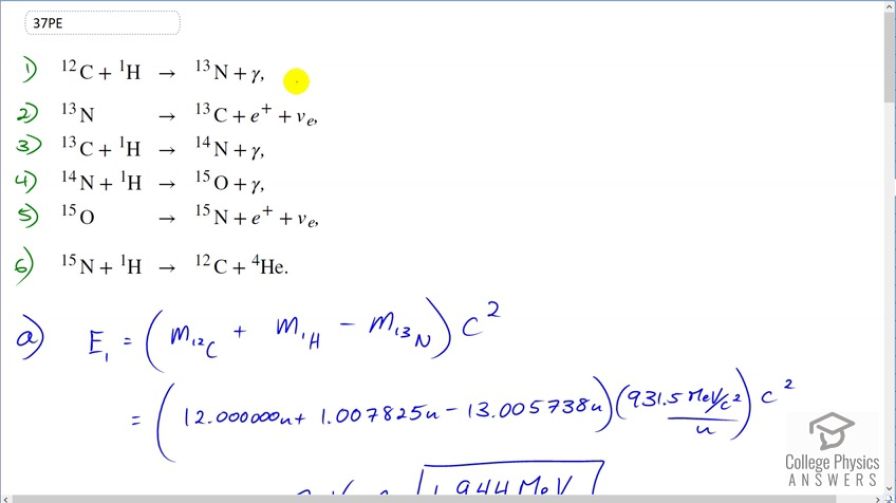 37PE
1) ¹²C + ¹H → ¹³N + γ,
2) ¹³N → ¹³C + e⁺ + νₑ,
3) ¹³C + ¹H → ¹⁴N + γ,
4) ¹⁴N + ¹H → ¹⁵O + γ,
5) ¹⁵O → ¹⁵N + e⁺ + νₑ,
6) ¹⁵N + ¹H → ¹²C + ⁴He.
a) E₁ = (m₁₂C + m₁H − m₁₃N) c²
= (12.000000u + 1.007825u − 13.005738u)(931.5 MeV/c² / u) c²
1.944 MeV
College Physics
ANSWERS